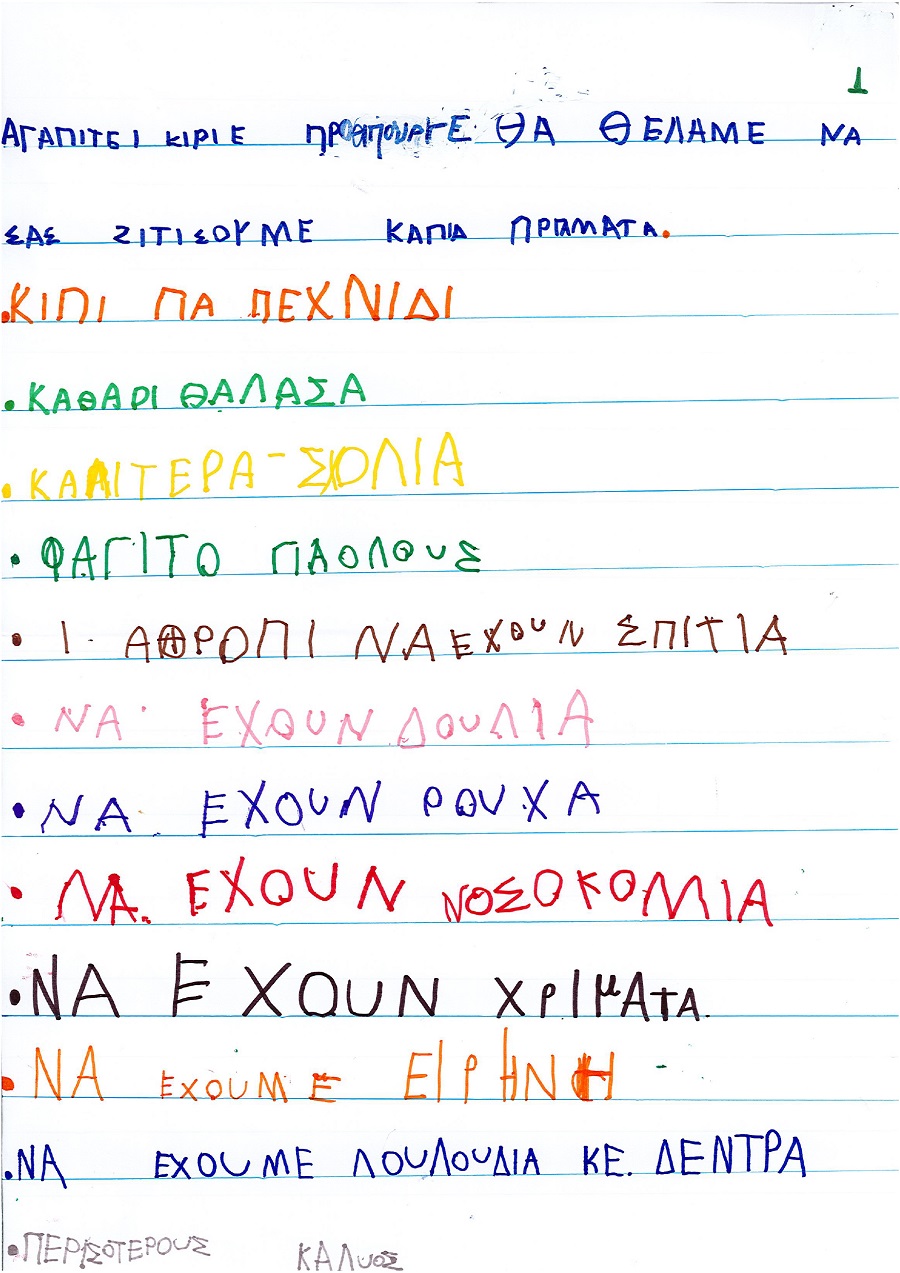 1
ΑΓΑΠΙΤΕΙ ΚΙΡΙΕ ΠΡΟΘΠΟΥΡΓΕ ΘΑ ΘΕΛΑΜΕ ΝΑ
ΣΑΣ ΖΙΤΙΣΟΥΜΕ ΚΑΠΙΑ ΠΡΑΜΑΤΑ.
.ΚΙΠΙ ΠΑ ΠΕΧΝΙΔΙ
.ΚΑΘΑΡΙ ΘΑΛΑΣΑ
.ΚΑΛΙΤΕΡΑ-ΣΧΟΛΙΑ
• ΦΑΓΙΤΟ ΓΙΑΟΛΟΥΣ
• Ι. ΑΘΡΟΠΙ ΝΑ ΕΧΟΥΝ ΣΠΙΤΙΑ
• ΝΑ ΕΧΟΥΝ ΔΟΥΛΙΑ
• ΝΑ. ΕΧΟΥΝ ΡΟΥΧΑ
• ΝΑ. ΕΧΟΥΝ ΝΟΣΟΚΟΜΙΑ
•ΝΑ ΕΧΟΥΝ ΧΡΙΜΑΤΑ.
• ΝΑ ΕΧΟΥΜΕ ΕΙΡΗΝΗ
.ΝΑ ΕΧΟΥΜΕ ΛΟΥΛΟΥΔΙΑ ΚΕ. ΔΕΝΤΡΑ
•ΠΕΡΙΣΟΤΕΡΟΥΣ